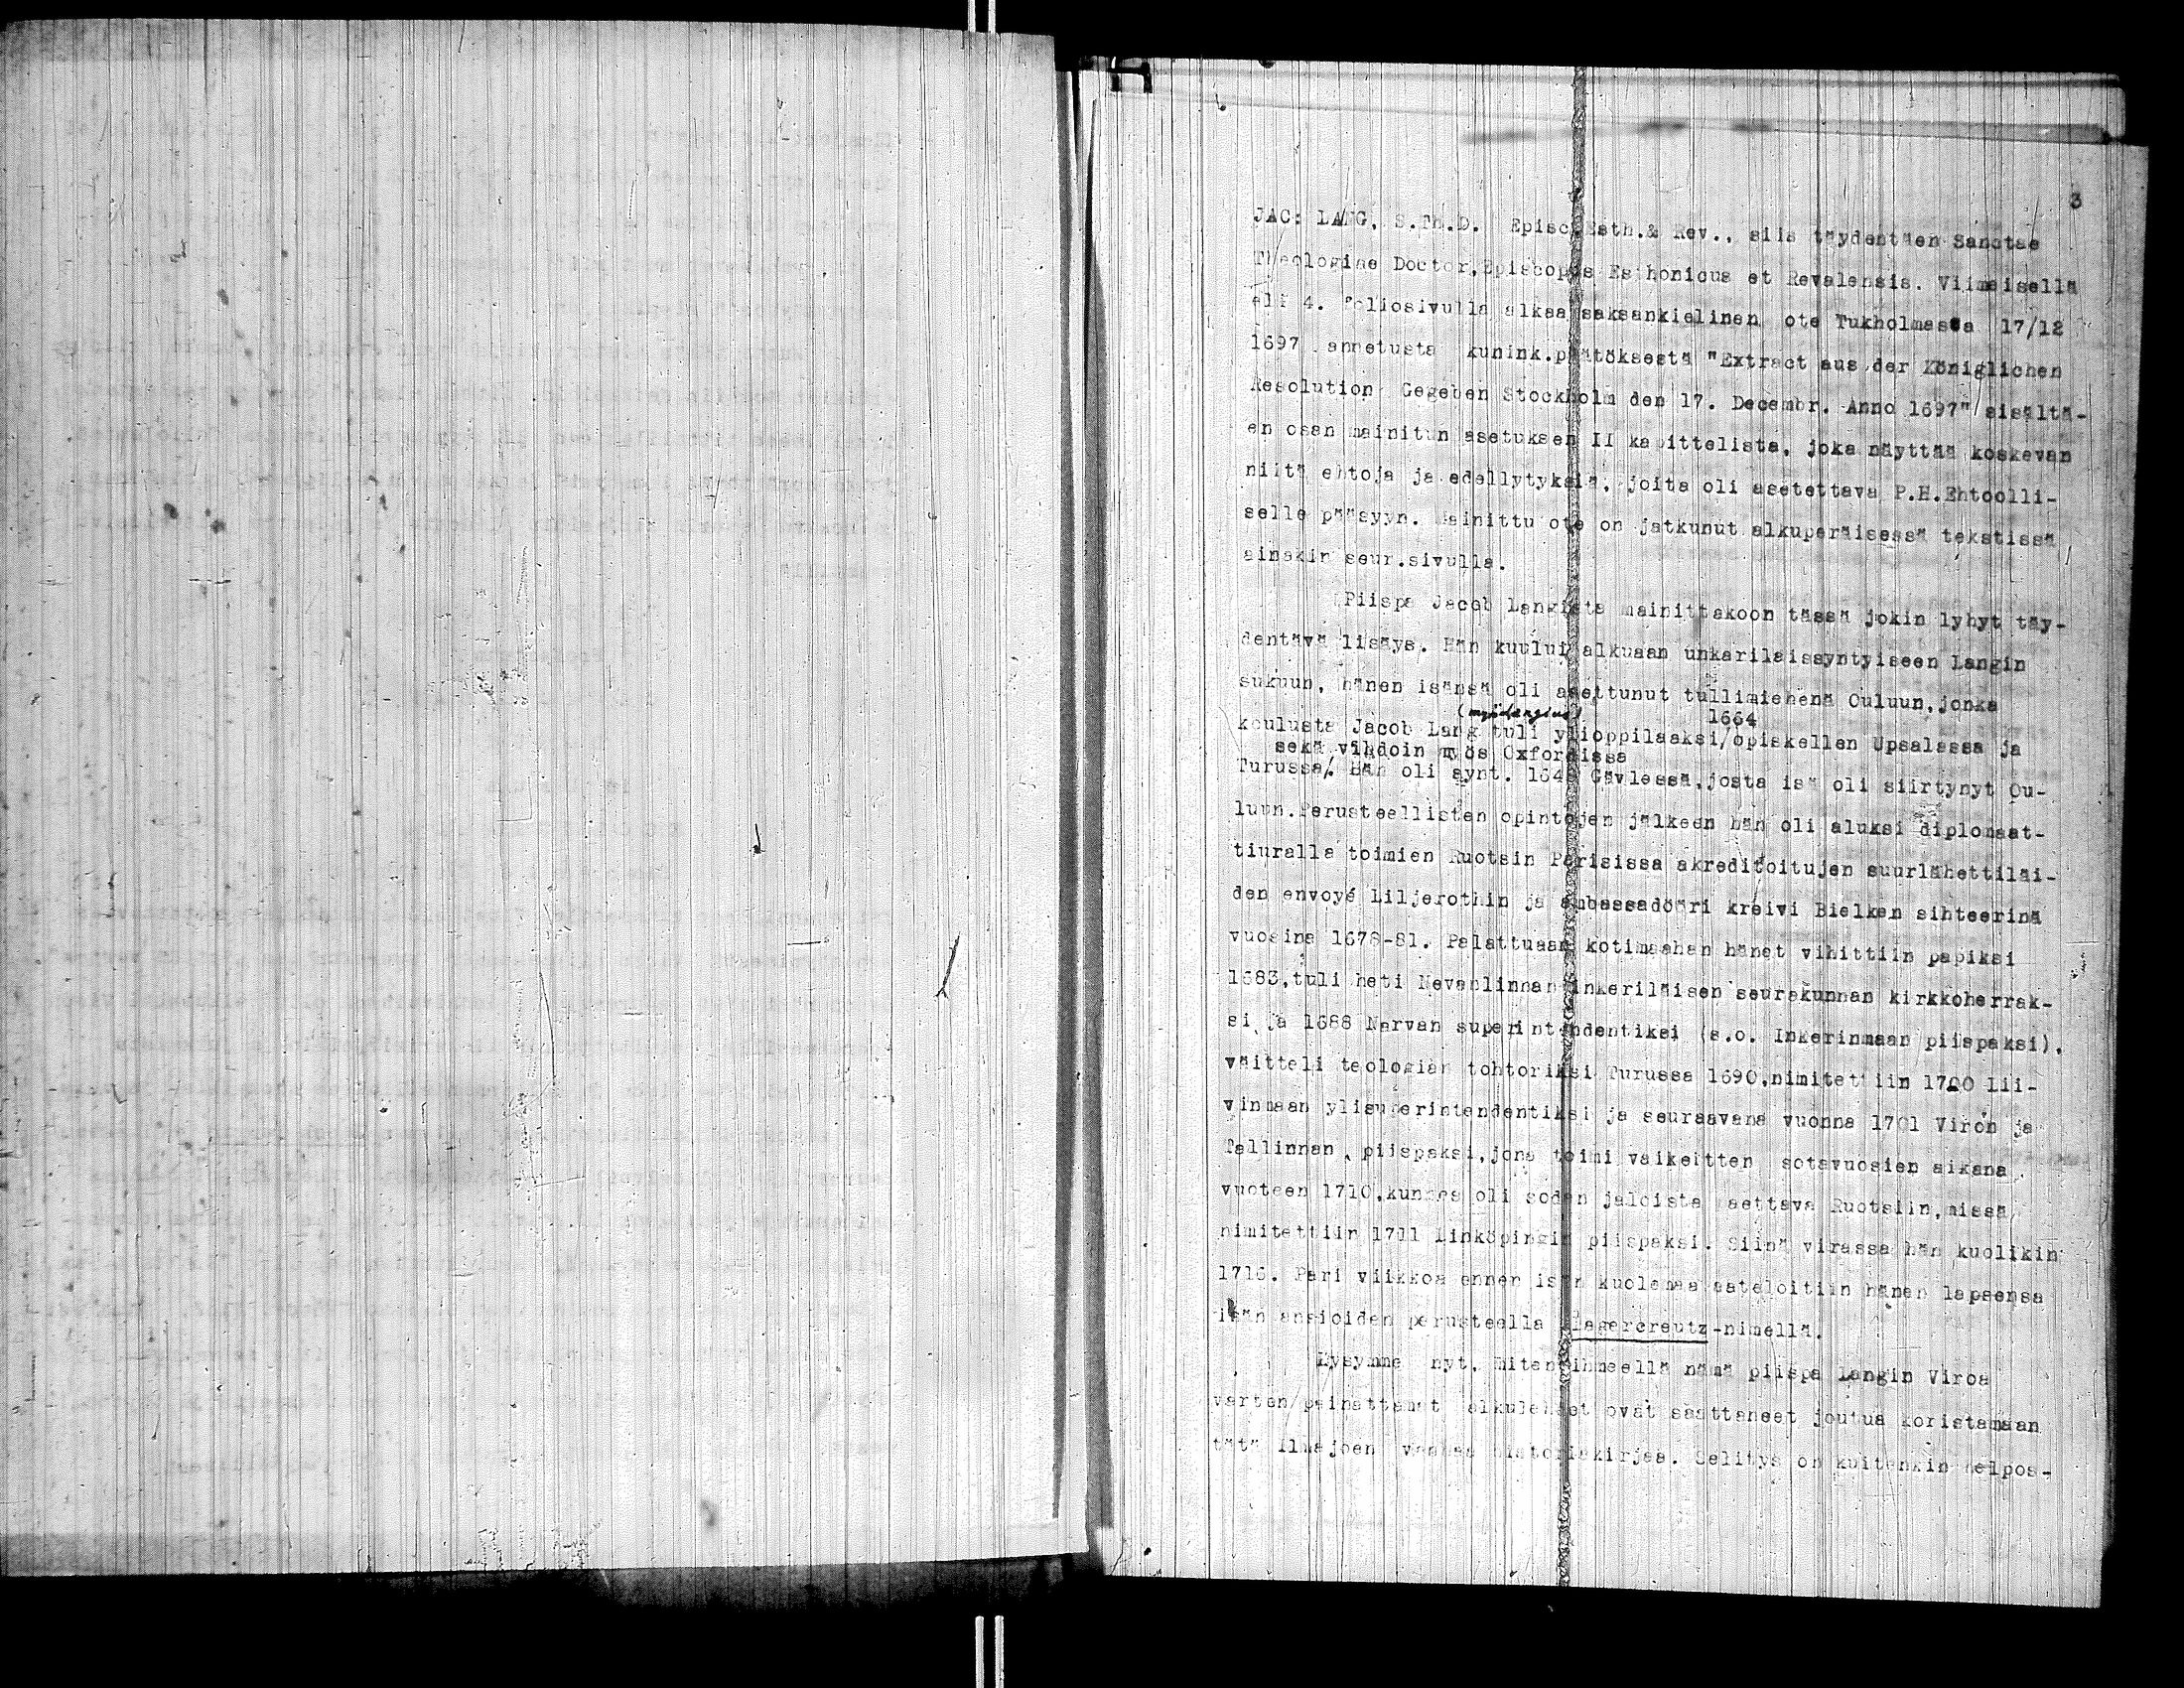 3
JAC: LANG, S.Th.D. Episc.Esth.& Rev., siis täydentäen Sanctae
Theologiae Doctor,Episcopus Esthonicus et Revalensis. Viimeisellä
eli 4. foliosivulla alkaa saksankielinen ote Tukholmassa 17/12
1697 annetusta kunink.päätöksestä "Extract aus der Königlichen
Resolution Gegeben Stockholm den 17. Decembr. Anno 1697" sisältä-
en osan mainitun asetuksen II kapittelista, joka näyttää koskevan
niitä ehtoja ja edellytyksiä, joita oli asetettava P.H.Ehtoolli-
selle pääsyyn. Mainittu ote on jatkunut alkuperäisessä tekstissä
ainakin seur.sivulla.
Piispa Jacob Langista mainittakoon tässä jokin lyhyt täy-
dentävä lisäys. Hän kuului alkuaan unkarilaissyntyiseen Langin
sukuun, hänen isänsä oli asettunut tullimiehenä Ouluun,jonka
(myös Langius) 1664
koulusta Jacob Lang tuli ylioppilaaksi/opiskellen Upsalassa ja
sekä vihdoin myös Oxfordissa
Turussa/. Hän oli synt. 164 Gävlessä,josta isä oli siirtynyt Ou-
luun.Perusteellisten opintojen jälkeen hän oli aluksi diplomaat-
tiuralla toimien Ruotsin Parisissa akreditoitujen suurlähettiläi-
den envoyé Liljerothin ja ambassadööri kreivi Bielken sihteerinä
vuosina 1678-81. Palattuaan kotimaahan hänet vihittiin papiksi
1683,tuli heti Nevanlinnan inkeriläisen seurakunnan kirkkoherrak-
si ja 1688 Narvan superintendentiksi (s.o. Inkerinmaan piispaksi),
väitteli teologian tohtoriksi Turussa 1690,nimitettiin 1700 Lii-
vinmaan ylisuperintendentiksi ja seuraavana vuonna 1701 Viron ja
Tallinnan piispaksi,jona toimi vaikeitten sotavuosien aikana
vuoteen 1710,kunnes oli sodan jaloista paettava Ruotsiin,missä
nimitettiin 1711 Linköpingin piispaksi. Siinä virassa hän kuolikin
1716. Pari viikkoa ennen isän kuolemaa aateloitiin hänen lapsensa
isän ansioiden perusteella Lagercreutz-nimellä.
Kysymme nyt, miten ihmeellä nämä piispa Langin Viroa
varten painattamat alkulehdet ovat saattaneet joutua koristamaan
tätä Ilmajoen vanhaa historiakirjaa. Selitys on kuitenkin helpos-